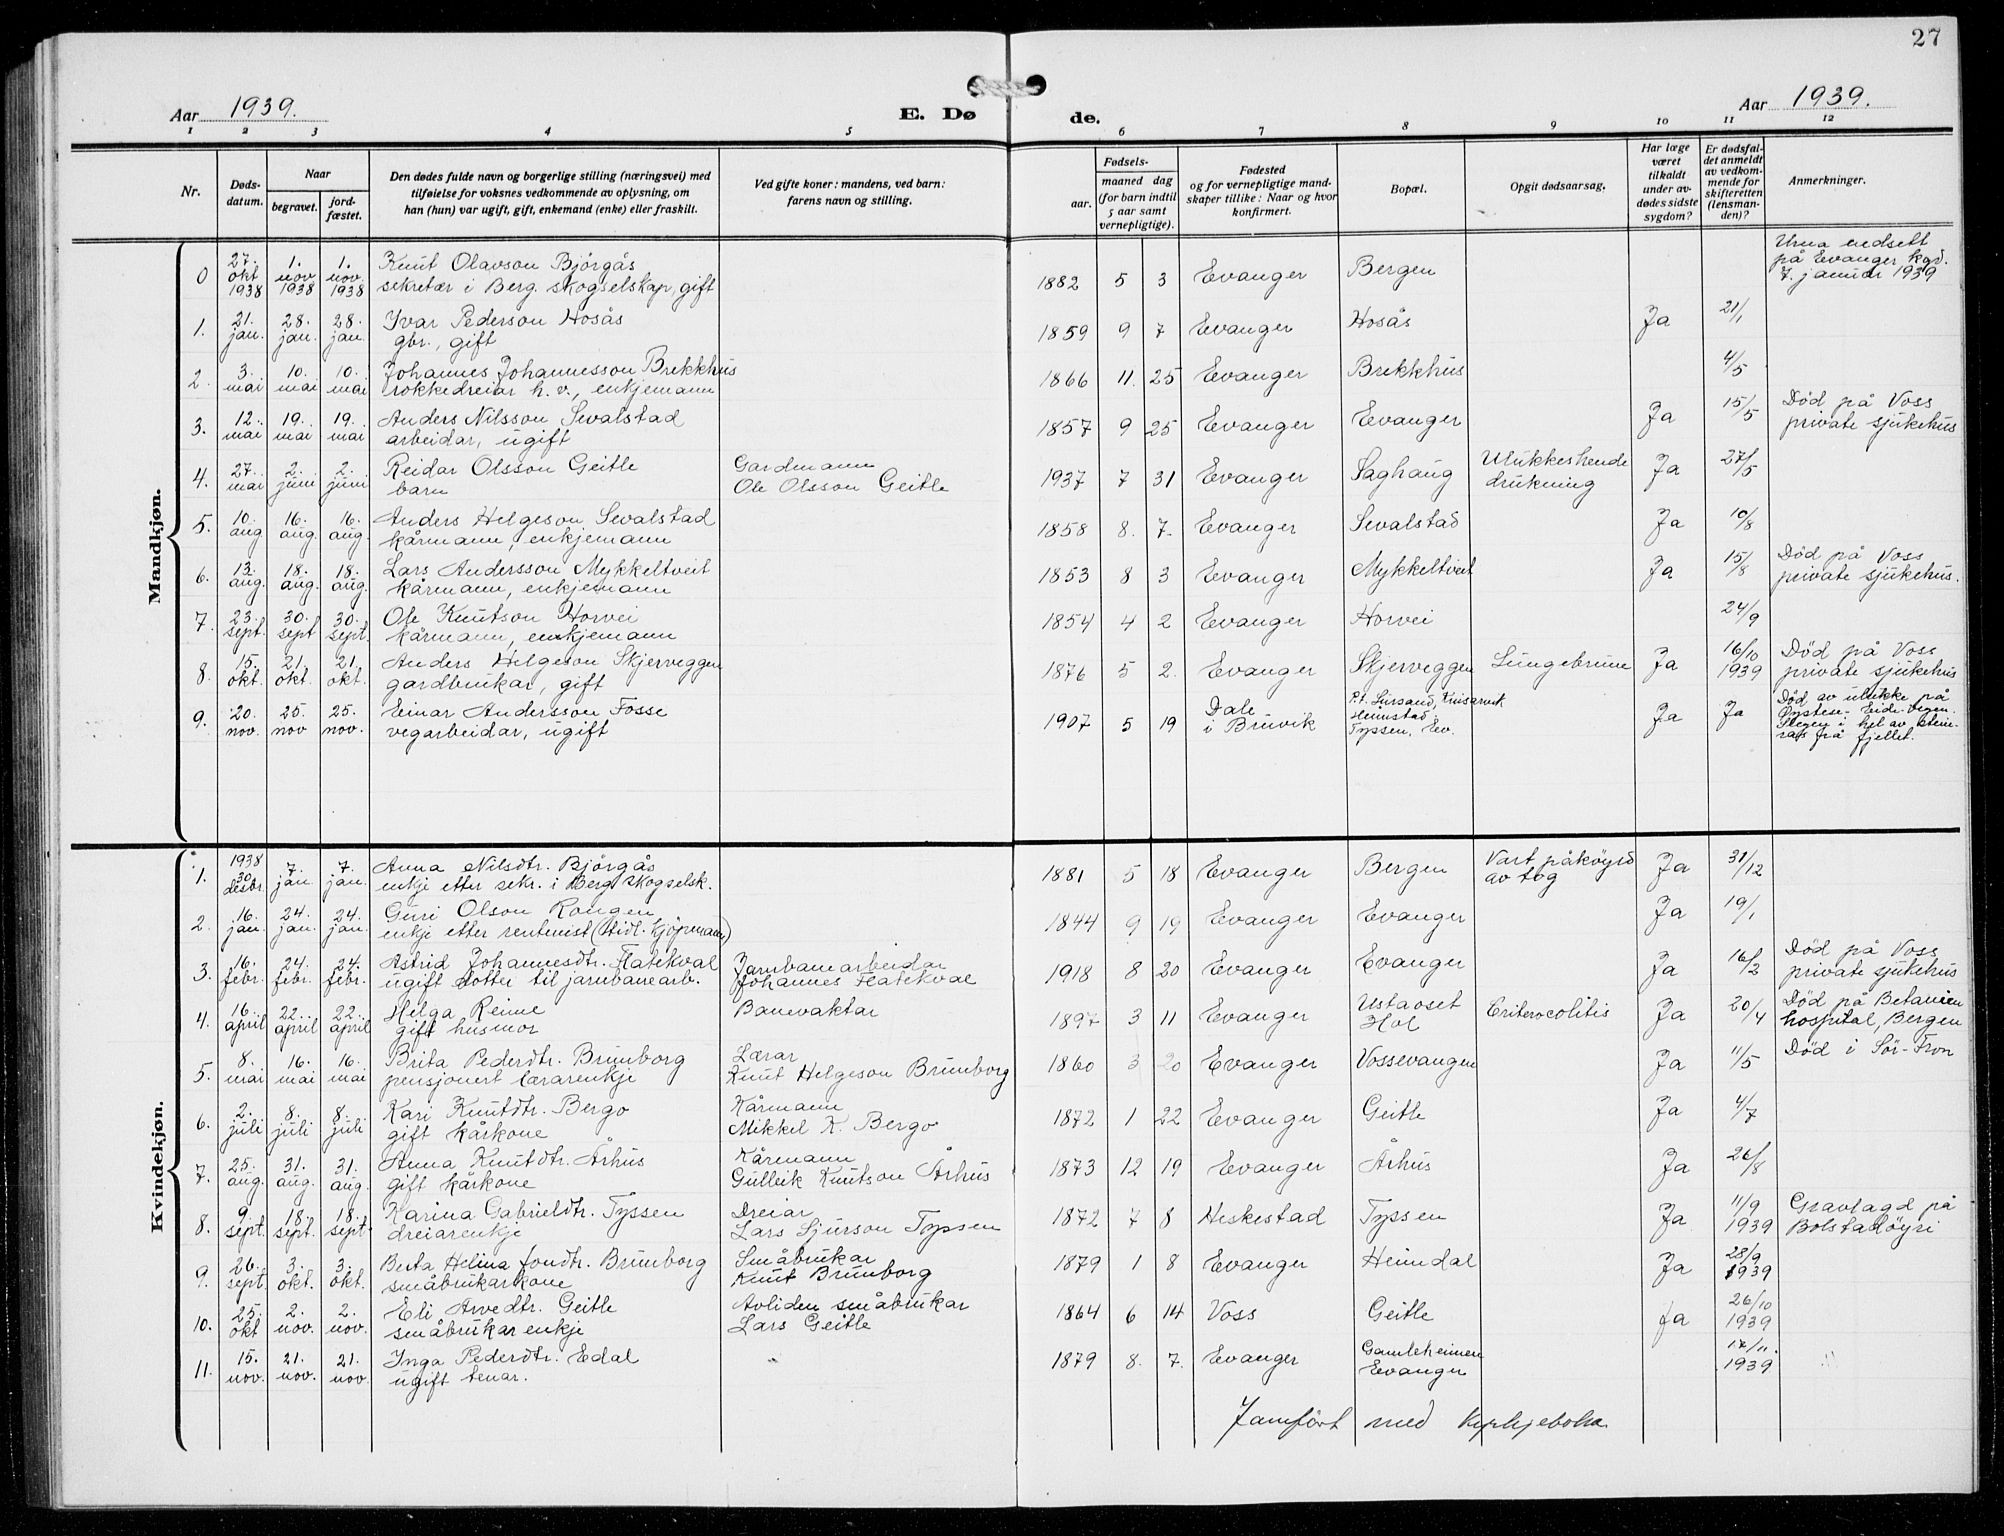 27
Aar 1939. E. Dø de. Aar 1939.
1 2 3 4 5 6 7 8 9 10 11 12
Nr. Døds-datum. Naar begravet. jord-fæstet. Den dødes fulde navn og borgerlige stilling (næringsvei) med tilføielse for voksnes vedkommende av oplysning, om han (hun) var ugift, gift, enkemand (enke) eller fraskilt. Ved gifte koner: mandens, ved barn: farens navn og stilling. Fødsels- aar. maaned dag (for barn indtil 5 aar samt vernepligtige). Fødested og for vernepligtige mand-skaper tillike: Naar og hvor konfirmert. Bopæl. Opgit dødsaarsag. Har læge været tilkaldt under av-dødes sidste sygdom? Er dødsfal-det anmeldt av vedkom-mende for skifteretten (lensman-den)? Anmerkninger.
Mandkjøn.
0 27. okt 1938 1. nov 1938 1. nov 1938 Knut Olavson Bjørgås sekretær i Berg. skogselskap, gift 1882 5 3 Evanger Bergen Urna nedsett på Evanger kgd. 7. januar 1939
1. 21. jan. 28. jan. 28. jan. Ivar Pederson Hosås gbr., gift 1859 9 7 Evanger Hosås Ja 21/1
2. 3. mai 10. mai 10. mai Johannes Johannesson Brekkhus rokkedreiar h. v., enkjemann 1866 11. 25 Evanger Brekkhus 4/5
3. 12. mai 19. mai 19. mai Anders Nilsson Sevalstad arbeidar, ugift 1857 9 25 Evanger Evanger Ja 15/5 Død på Voss private sjukehus
4. 27. mai 2. juni 2. juni Reidar Olsson Geitle barn Gardmann Ole Olsson Geitle 1937 7 31 Evanger Saghaug Ulukkeshende drukning Ja 27/5
5. 10. aug 16. aug. 16. aug. Anders Helgeson Sevalstad kårmann, enkjemann 1858 8. 7. Evanger Sevalstad Ja 10/8
6. 13. aug. 18. aug. 18. aug. Lars Andersson Mykkeltveit kårmann, enkjemann 1853 8 3 Evanger Mykkeltveit Ja 15/8 Død på Voss private sjukehus.
7. 23. sept. 30. sept 30. sept. Ole Knutson Horvei kårmann, enkjemann 1854 4 2 Evanger Horvei 24/9
8. 15. okt. 21. okt. 21. okt. Anders Helgeson Skjerveggen gardbrukar, gift 1876 5 2. Evanger Skjerveggen Lungebrune Ja 16/10 1939 Død på Voss private sjukehus
9. 20. nov. 25. nov 25. nov. Einar Andersson Fosse vegarbeidar, ugift 1907 5 19 Dale i Bruvik P.t. Kinsarvik Heimstad Tyssen, Ev. Ja Ja Død av ulukke på Eide-vegen. Slegen i hel av stein-ras frå fjellet.
Kvindekjøn.
1. 1938 30 desbr. 7. jan. 7. jan. Anna Nilsdtr. Bjørgås enkje etter sekr. i Berg. Skogselsk. 1881 5 18 Evanger Bergen Vart påkøyrd av tog Ja 31/12
2. 16. jan. 24. jan. 24. jan. Guri Olson Rongen enkje etter rentenist (tidl. kjøpmann) 1844 9 19 Evanger Evanger Ja 19/1
3. 16. febr. 24. febr. 24. febr. Astrid Johannesdtr. Flatekval ugift dotter til jarnbanearb. Jarnbanearbeidar Johannes Flatekval 1918 8 20 Evanger Evanger Ja 16/2 Død på Voss private sjukehus
4. 16. april 22. april 22. april Helga Reime gift husmor Banevaktar 1897 3 11 Evanger Ustaoset Hol Enterocolitis Ja 20/4 Død på Betanien hospital, Bergen
5. 8. mai 16. mai 16. mai Brita Pederdtr. Brunborg pensjonert lærarenkje Lærar Knut Helgeson Brunborg 1860 3 20 Evanger Vossevangen Ja 11/5 Død i Sør-Fron
6. 2. juli 8. juli 8. juli Kari Knutdtr. Bergo gift kårkone Kårmann Mikkel K. Bergo 1872 1 22 Evanger Geitle Ja 4/7
7. 25. aug. 31. aug. 31. aug. Anna Knutdtr. Århus gift kårkone Kårmann Gulleik Knutson Århus 1873 12 19 Evanger Århus Ja 26/8
8. 9. sept. 18. sept. 18. sept. Karina Gabrieldtr. Tyssen dreiarenkje Dreiar Lars Sjurson Tyssen 1872 7 8 Heskestad Tyssen Ja 11/9 1939 Gravlagd på Bolstadøyri
9. 26. sept. 3. okt. 3. okt. Berta Helina Jondtr. Brunborg småbrukarkone Småbrukar Knut Brunborg 1879 1 8 Evanger Heimdal Ja 28/9 1939
10. 25. okt 2. nov. 2. nov. Eli Arvedtr. Geitle småbrukarenkje Avliden småbrukar Lars Geitle 1864 6 14 Voss Geitle Ja 26/10 1939
11. 15. nov. 21. nov. 21. nov. Inga Pederdtr. Edal ugift tenar. 1879 8. 7. Evanger Gamleheimen Evanger 17/11. 1939
Jamført med kyrkjeboka